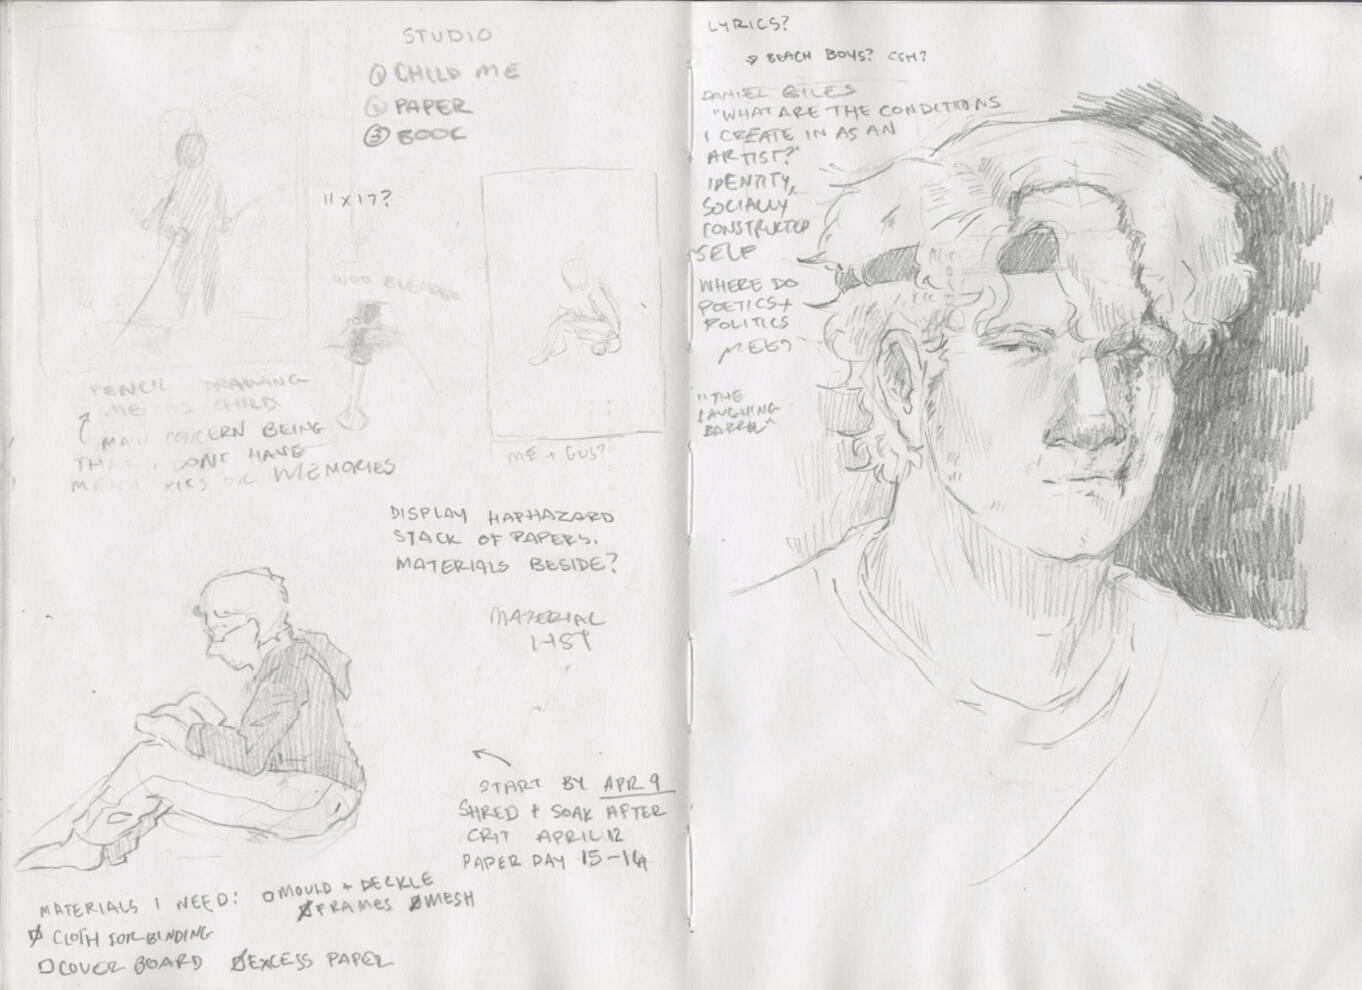 STUDIO
① CHILD ME
② PAPER
③ BOOK
11 x 17?
PENCIL DRAWING
ME AS CHILD
MAIN CONCERN BEING
THAT I DONT HAVE
MANY PICS OR MEMORIES
ME + GUS?
DISPLAY HAPHAZARD
STACK OF PAPERS.
MATERIALS BESIDE?
MATERIAL
LIST
START BY APR 9
SHRED + SOAK AFTER
CRIT APRIL 12
PAPER DAY 15-16
MATERIALS I NEED: MOULD + DECKLE
FRAMES MESH
CLOTH FOR BINDING
COVER BOARD EXCESS PAPER
LYRICS?
BEACH BOYS? CSH?
DANIEL GILES
"WHAT ARE THE CONDITIONS
I CREATE IN AS AN
ARTIST?"
IDENTITY,
SOCIALLY
CONSTRUCTED
SELF
WHERE DO
POETICS +
POLITICS
MEET?
"THE
LAUGHING
BARREL"